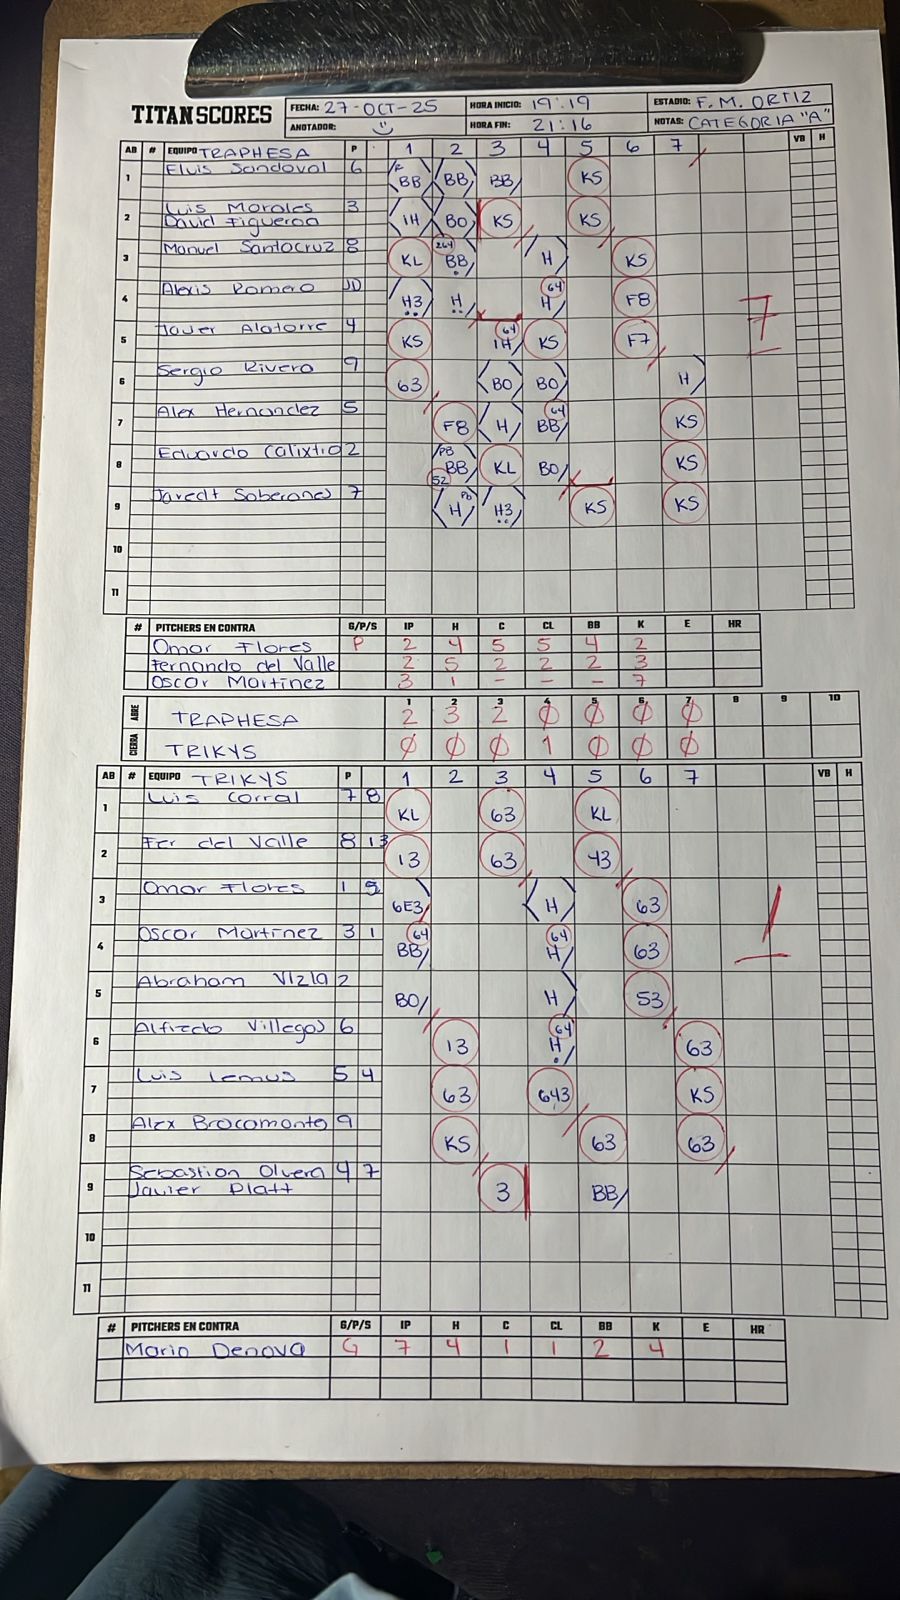 TITAN SCORES
FECHA: 27-OCT-25 HORA INICIO: 19:19 ESTADIO: F. M. ORTIZ
ANOTADOR: HORA FIN: 21:16 NOTAS: CATEGORIA "A"
AB # EQUIPO TRAPHESA P 1 2 3 4 5 6 7 VB H
1 Eluis Sandoval 6 BB BB BB KS
2 Luis Morales 3 1H BO KS KS
David Figueroa
3 Manuel Santacruz 8 KL 264 BB H KS
4 Alexis Romero JD H3 H 64 H F8
5 Javier Alatorre 4 KS 64 1H KS F7
7
6 Sergio Rivera 9 63 BO BO H
7 Alex Hernandez 5 F8 H 64 BB KS
8 Eduardo Calixtio 2 PB BB 52 KL BO KS
9 Jaredt Soberanes 7 H PB H3 KS KS
10
11
# PITCHERS EN CONTRA G/P/S IP H C CL BB K E HR
Omar Flores P 2 4 5 5 4 2
Fernando del Valle 2 5 2 2 2 3
Oscar Martinez 3 1 - - - 7
ABRE TRAPHESA 1 2 3 4 5 6 7 8 9 10
2 3 2 Ø Ø Ø Ø
CIERRA TRIKYS Ø Ø Ø 1 Ø Ø Ø
AB # EQUIPO TRIKYS P 1 2 3 4 5 6 7 VB H
1 Luis Corral 7 8 KL 63 KL
2 Fer del Valle 8 13 13 63 43
3 Omar Flores 1 9 6E3 H 63
4 Oscar Martinez 3 1 64 BB 64 H 63
1
5 Abraham Vizla 2 BO H 53
6 Alfredo Villegas 6 13 64 H 63
7 Luis Lemus 5 4 63 643 KS
8 Alex Bracamonte 9 KS 63 63
9 Sebastian Olvera 4 7 3 BB
Javier Platt
10
11
# PITCHERS EN CONTRA G/P/S IP H C CL BB K E HR
Mario Denova G 7 4 1 1 2 4